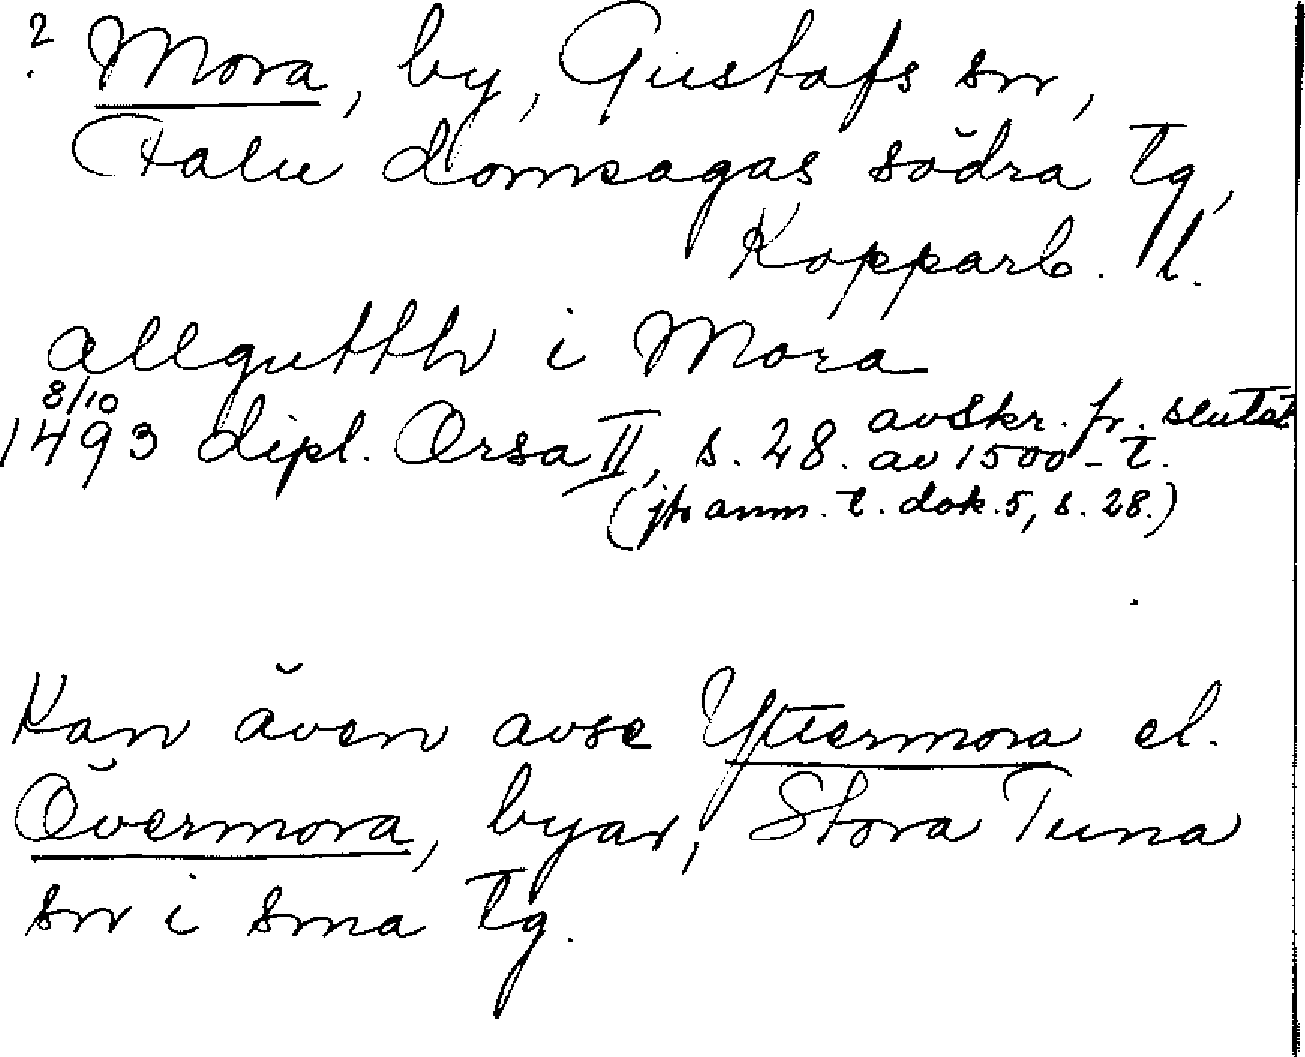 ? Mora, by, Gustafs sn,
Falu domsagas södra tg,
Kopparb. l.
allgutth i Mora
8/10
1493 dipl. Orsa II, s. 28. avskr. fr. slutet
av 1500-t.
(jfr anm. t. dok. 5, s. 28.)
Kan även avse Yttermora el.
Övermora, byar, Stora Tuna
sn i sma tg.